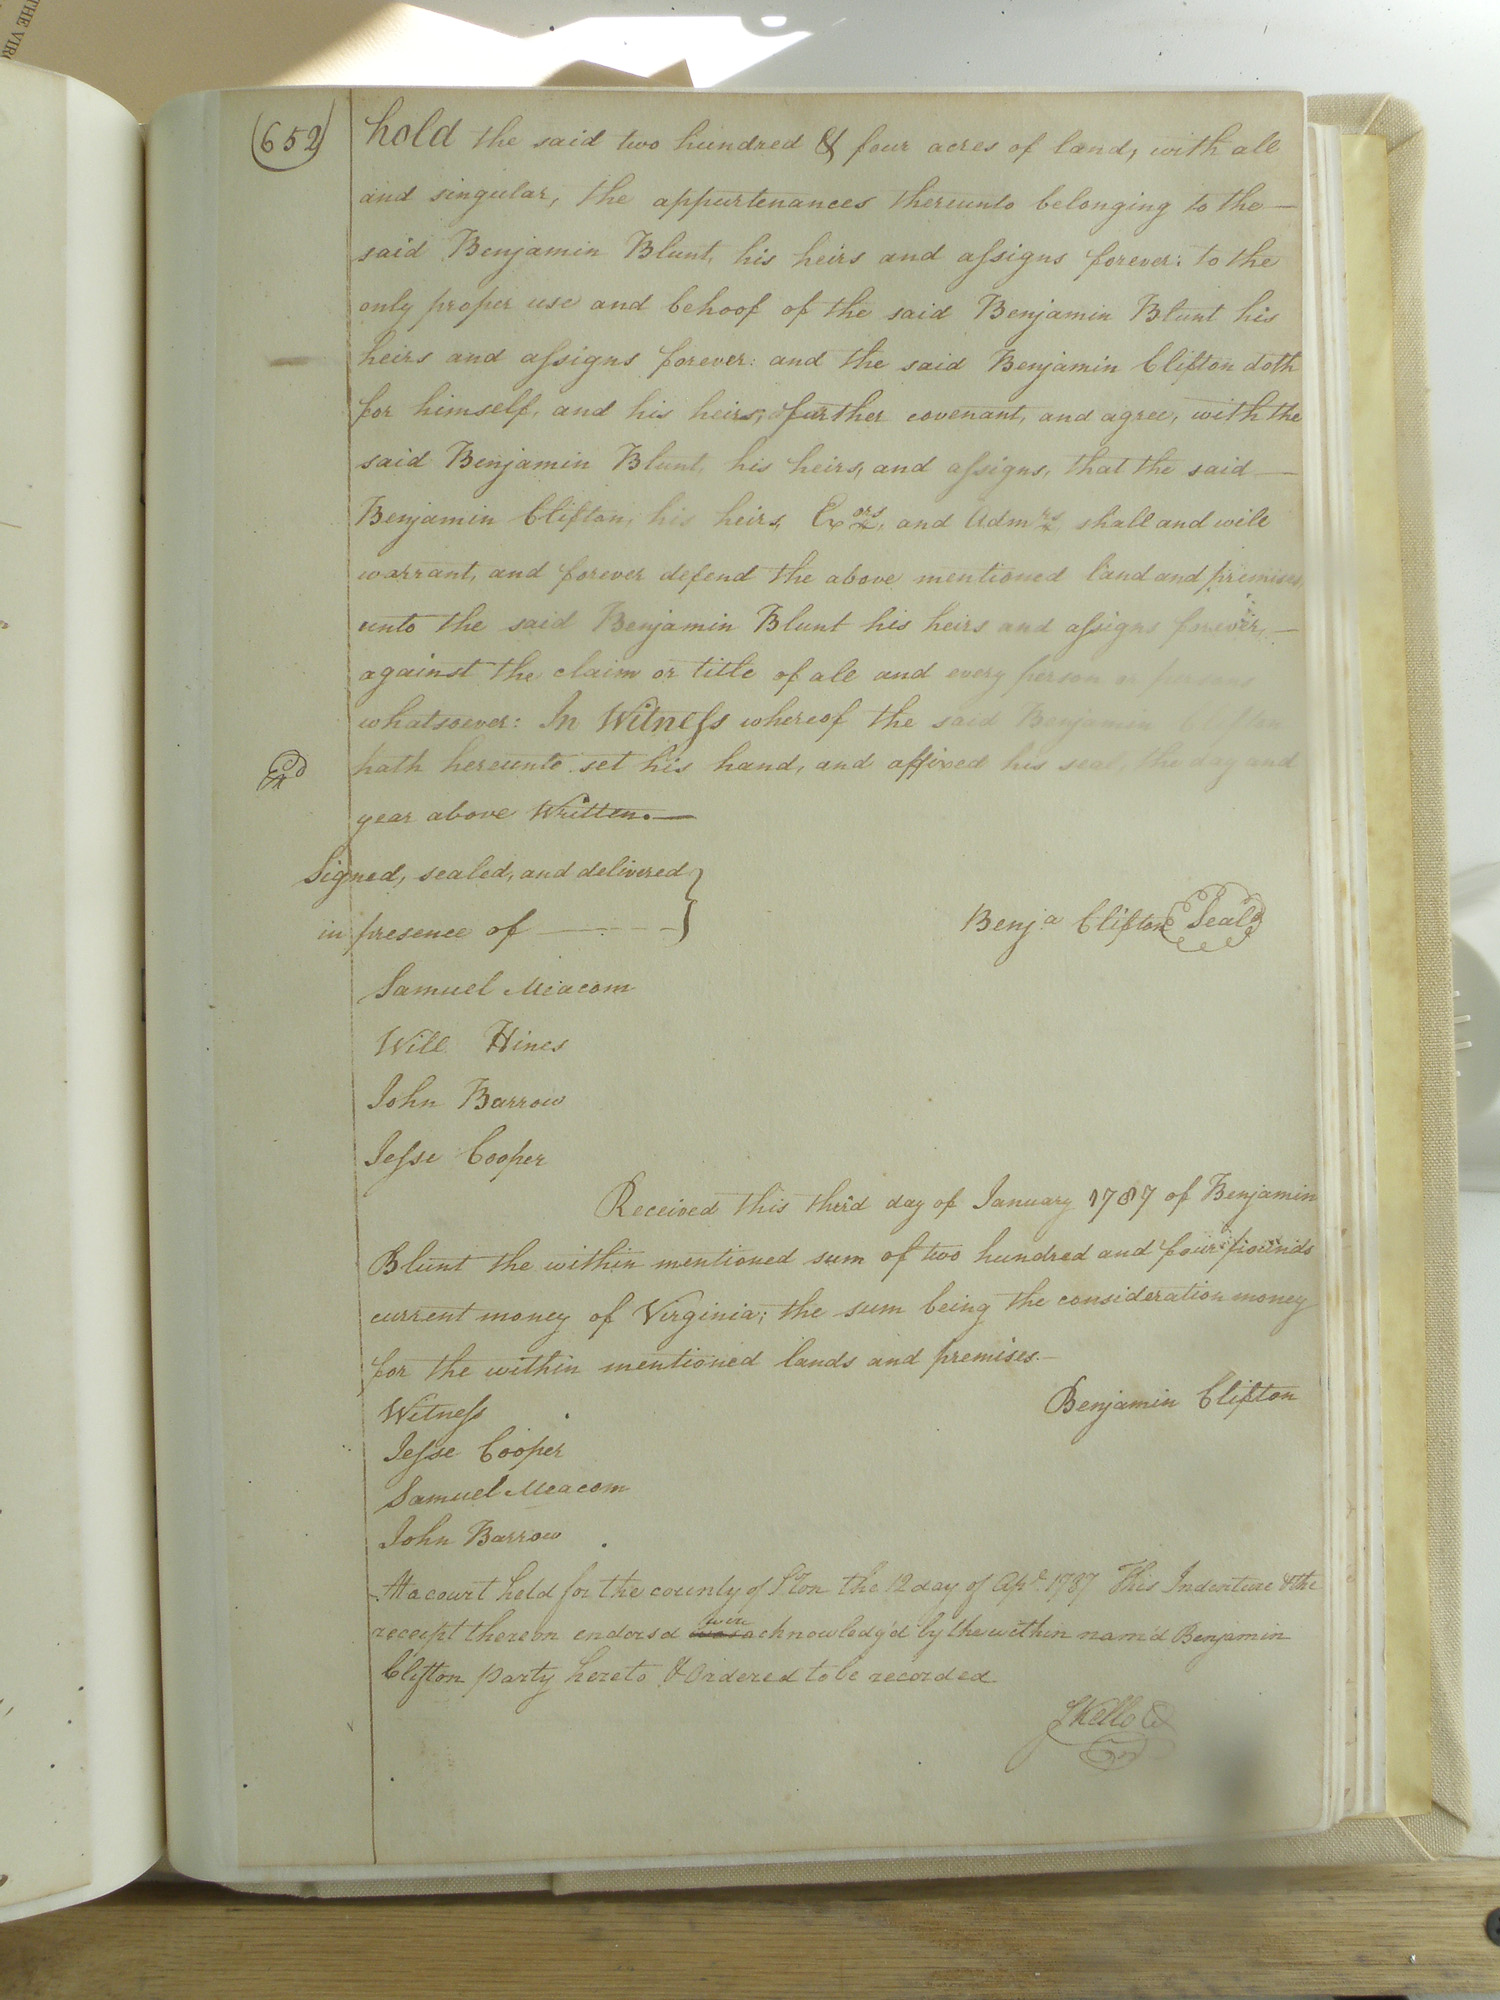 THE VIR
(652)
hold the said two hundred & four acres of land, with all
and singular, the appurtenances thereunto belonging to the —
said Benjamin Blunt, his heirs and aſsigns forever: to the
only proper use and behoof of the said Benjamin Blunt his
heirs and aſsigns forever: and the said Benjamin Clifton doth
for himself, and his heirs, further covenant, and agree, with the
said Benjamin Blunt, his heirs, and aſsigns, that the said —
Benjamin Clifton, his heirs, Exors, and Admrs shall and will
warrant, and forever defend the above mentioned land and premises,
unto the said Benjamin Blunt his heirs and aſsigns forever, —
against the claim or title of all and every person or persons
whatsoever: In Witneſs whereof the said Benjamin Clifton
hath hereunto set his hand, and affixed his seal, the day and
Exd
year above Written. —
Signed, sealed, and delivered }
in presence of — — — }
Benja Clifton Seal
Samuel Meacom
Will Hines
John Barrow
Jeſse Cooper
Received this third day of January 1787 of Benjamin
Blunt the within mentioned sum of two hundred and four pounds
current money of Virginia; the sum being the consideration money
for the within mentioned lands and premises. —
Benjamin Clifton
Witneſs
Jeſse Cooper
Samuel Meacom
John Barrow
At a court held for the county of Sºton the 12 day of Apl. 1787 This Indenture & the
receipt thereon endorsd were acknowledg'd by the within nam'd Benjamin
Clifton party hereto & Ordered to be recorded
S Kello C